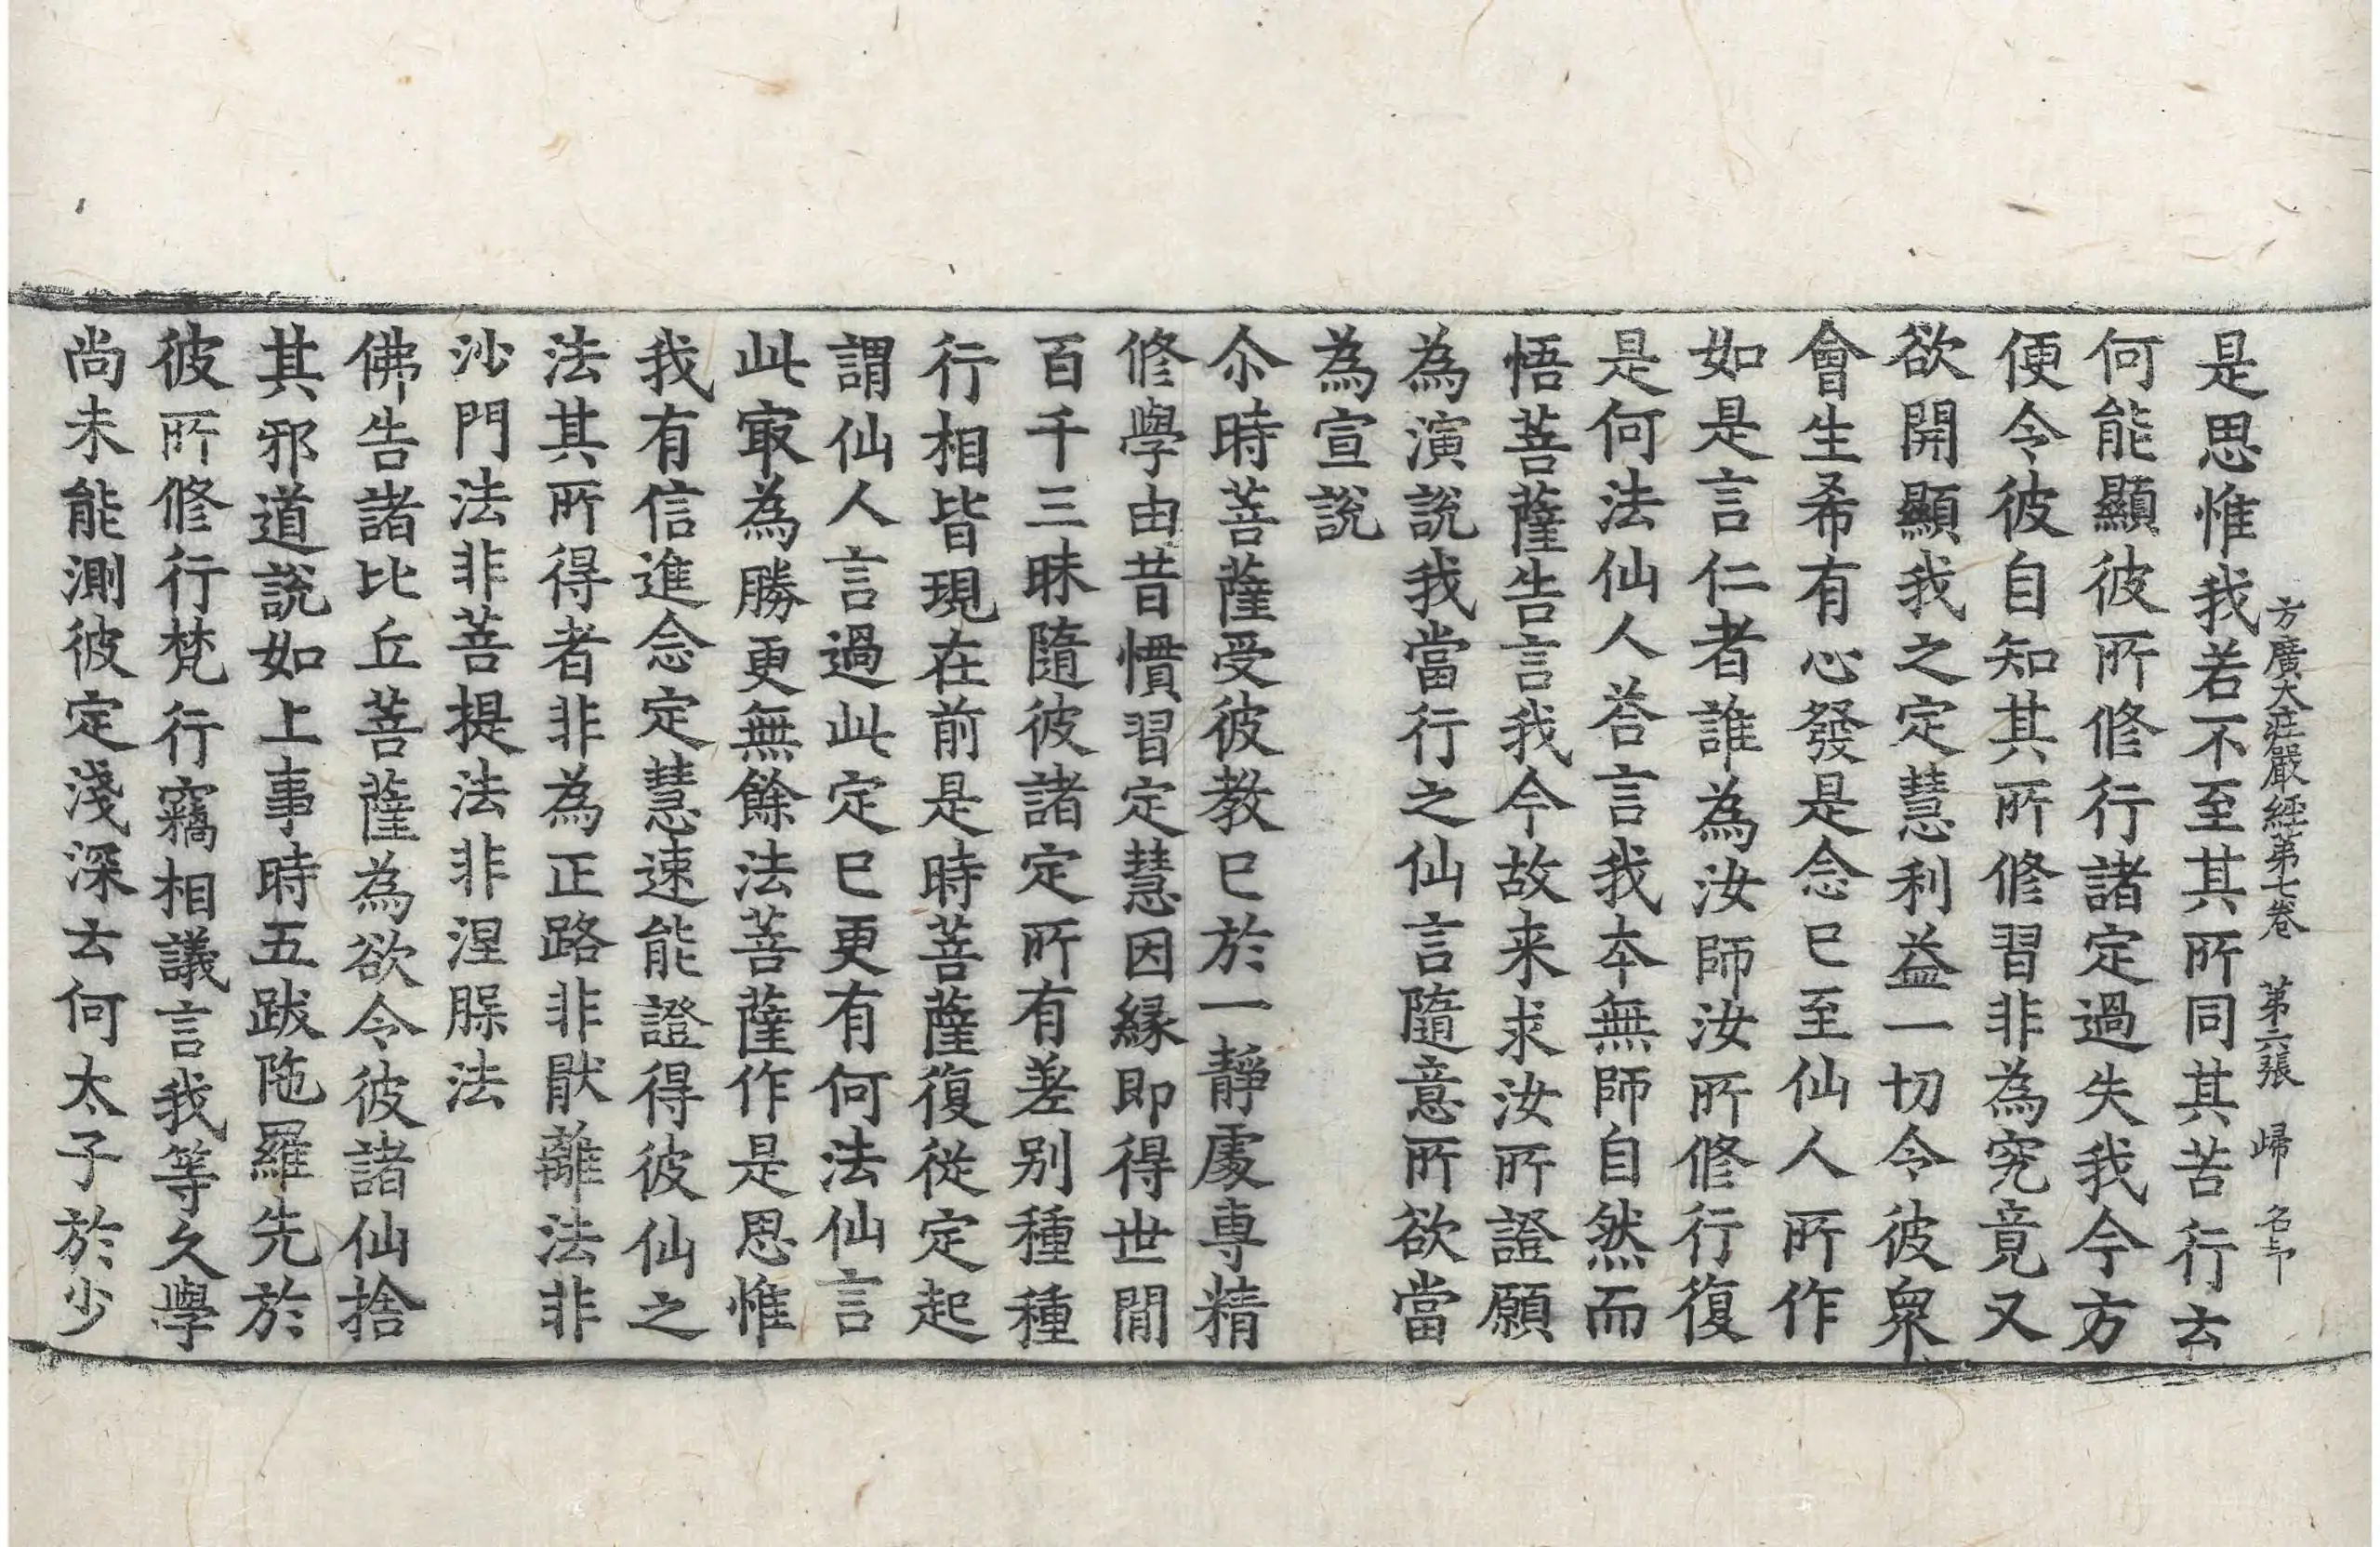 方廣大莊嚴經第七卷 第二張 歸 名卬
是思惟我若不至其所同其苦行云
何能顯彼所修行諸定過失我今方
便令彼自知其所修習非為究竟又
欲開顯我之定慧利益一切令彼衆
會生希有心發是念已至仙人所作
如是言仁者誰為汝師汝所修行復
是何法仙人荅言我本無師自然而
悟菩薩告言我今故来求汝所證願
為演說我當行之仙言隨意所欲當
為宣說
尒時菩薩受彼教已於一靜處專精
修學由昔慣習定慧因縁即得世間
百千三昧隨彼諸定所有差别種種
行相皆現在前是時菩薩復從定起
謂仙人言過此定已更有何法仙言
此㝡為勝更無餘法菩薩作是思惟
我有信進念定慧速能證得彼仙之
法其所得者非為正路非猒離法非
沙門法非菩提法非涅槃法
佛告諸比丘菩薩為欲令彼諸仙捨
其邪道說如上事時五跋陁羅先於
彼所修行梵行竊相議言我等久學
尚未能測彼定淺深云何太子於少